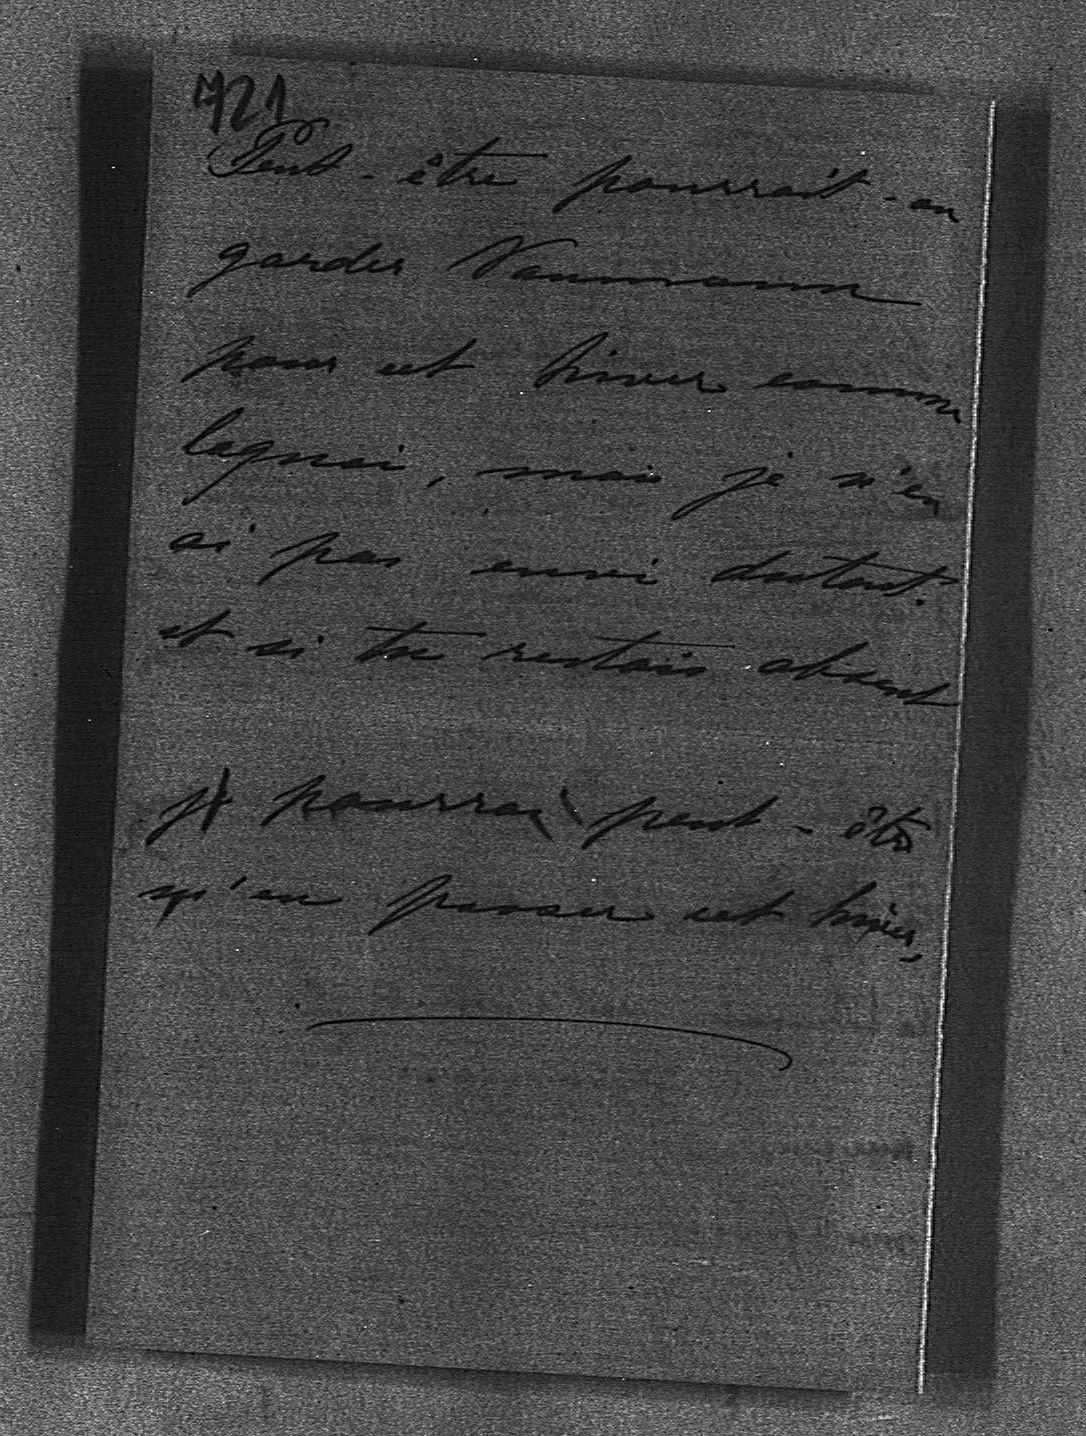 721
Peut-être pourrait-on
garder Naumann
pour cet hiver comme
laquai, mais je n'en
ai pas envi dutout.
et si tu restais absent
je pourrai peut-être
qu'en passer cet hiver,